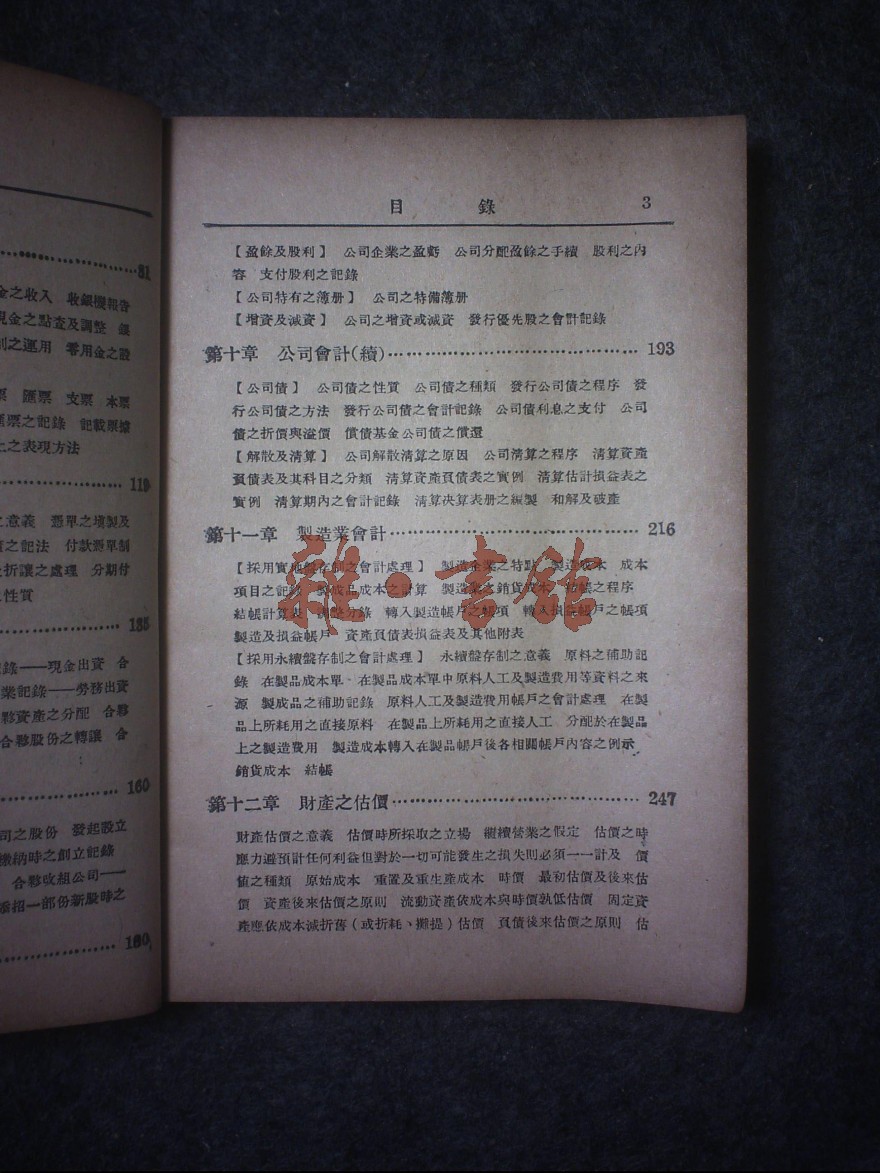 81
金之收入　收銀機報告
現金之點查及調整　銀
制之運用　零用金之設
票　匯票　支票　本票
匯票之記錄　記載票據
上之表現方法
119
之意義　憑單之填製及
之記法　付款憑單制
折讓之處理　分期付
性質
135
錄——現金出資　合
業記錄——勞務出資
夥資產之分配　合夥
合夥股份之轉讓　合
160
司之股份　發起設立
繳納時之創立記錄
合夥改組公司——
招一部份新股時之
180
目　錄　3
【盈餘及股利】　公司企業之盈虧　公司分配盈餘之手續　股利之內
容　支付股利之記錄
【公司特有之簿册】　公司之特備簿册
【增資及減資】　公司之增資或減資　發行優先股之會計記錄
第十章　公司會計(續)……………………………193
【公司債】　公司債之性質　公司債之種類　發行公司債之程序　發
行公司債之方法　發行公司債之會計記錄　公司債利息之支付　公司
債之折價與溢價　償債基金公司債之償還
【解散及清算】　公司解散清算之原因　公司清算之程序　清算資產
負債表及其科目之分類　清算資產負債表之實例　清算估計損益表之
實例　清算期內之會計記錄　清算決算表册之編製　和解及破產
第十一章　製造業會計……………………………216
【採用實地盤存制之會計處理】　製造企業之特點　製造成本　成本
項目之記錄　製成品成本之計算　製造業之銷貨成本　結帳之程序
結帳計算表　調整分錄　轉入製造帳戶之帳項　轉入損益帳戶之帳項
製造及損益帳戶　資產負債表損益表及其他附表
【採用永續盤存制之會計處理】　永續盤存制之意義　原料之補助記
錄　在製品成本單　在製品成本單中原料人工及製造費用等資料之來
源　製成品之補助記錄　原料人工及製造費用帳戶之會計處理　在製
品上所耗用之直接原料　在製品上所耗用之直接人工　分配於在製品
上之製造費用　製造成本轉入在製品帳戶後各相關帳戶內容之例示
銷貨成本　結帳
第十二章　財產之估價……………………………247
財產估價之意義　估價時所採取之立場　繼續營業之假定　估價之時
應力避預計任何利益但對於一切可能發生之損失則必須一一計及　價
值之種類　原始成本　重置及重生產成本　時價　最初估價及後來估
價　資產後來估價之原則　流動資產依成本與時價孰低估價　固定資
產應依成本減折舊（或折耗、攤提）估價　負債後來估價之原則　估
雜·書館